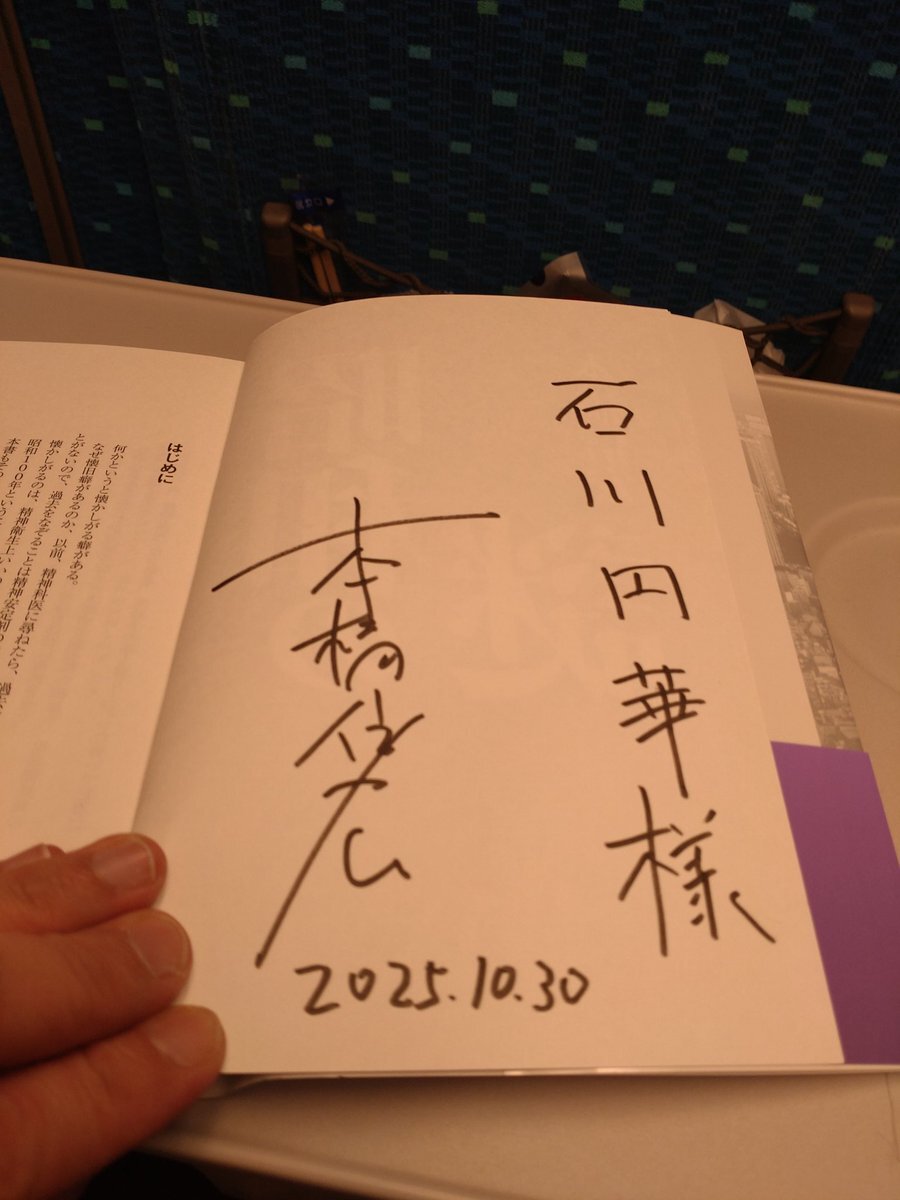 石川円華様
本橋信宏
2025.10.30
はじめに
何かというと懐かしがる癖がある。
なぜ懐旧癖があるのか、以前、精神科医に尋ねたら、過去
とがないので、過去をなぞることは精神安定剤の
懐かしがるのは、精神衛生上いい
昭和100年という
本書もそう